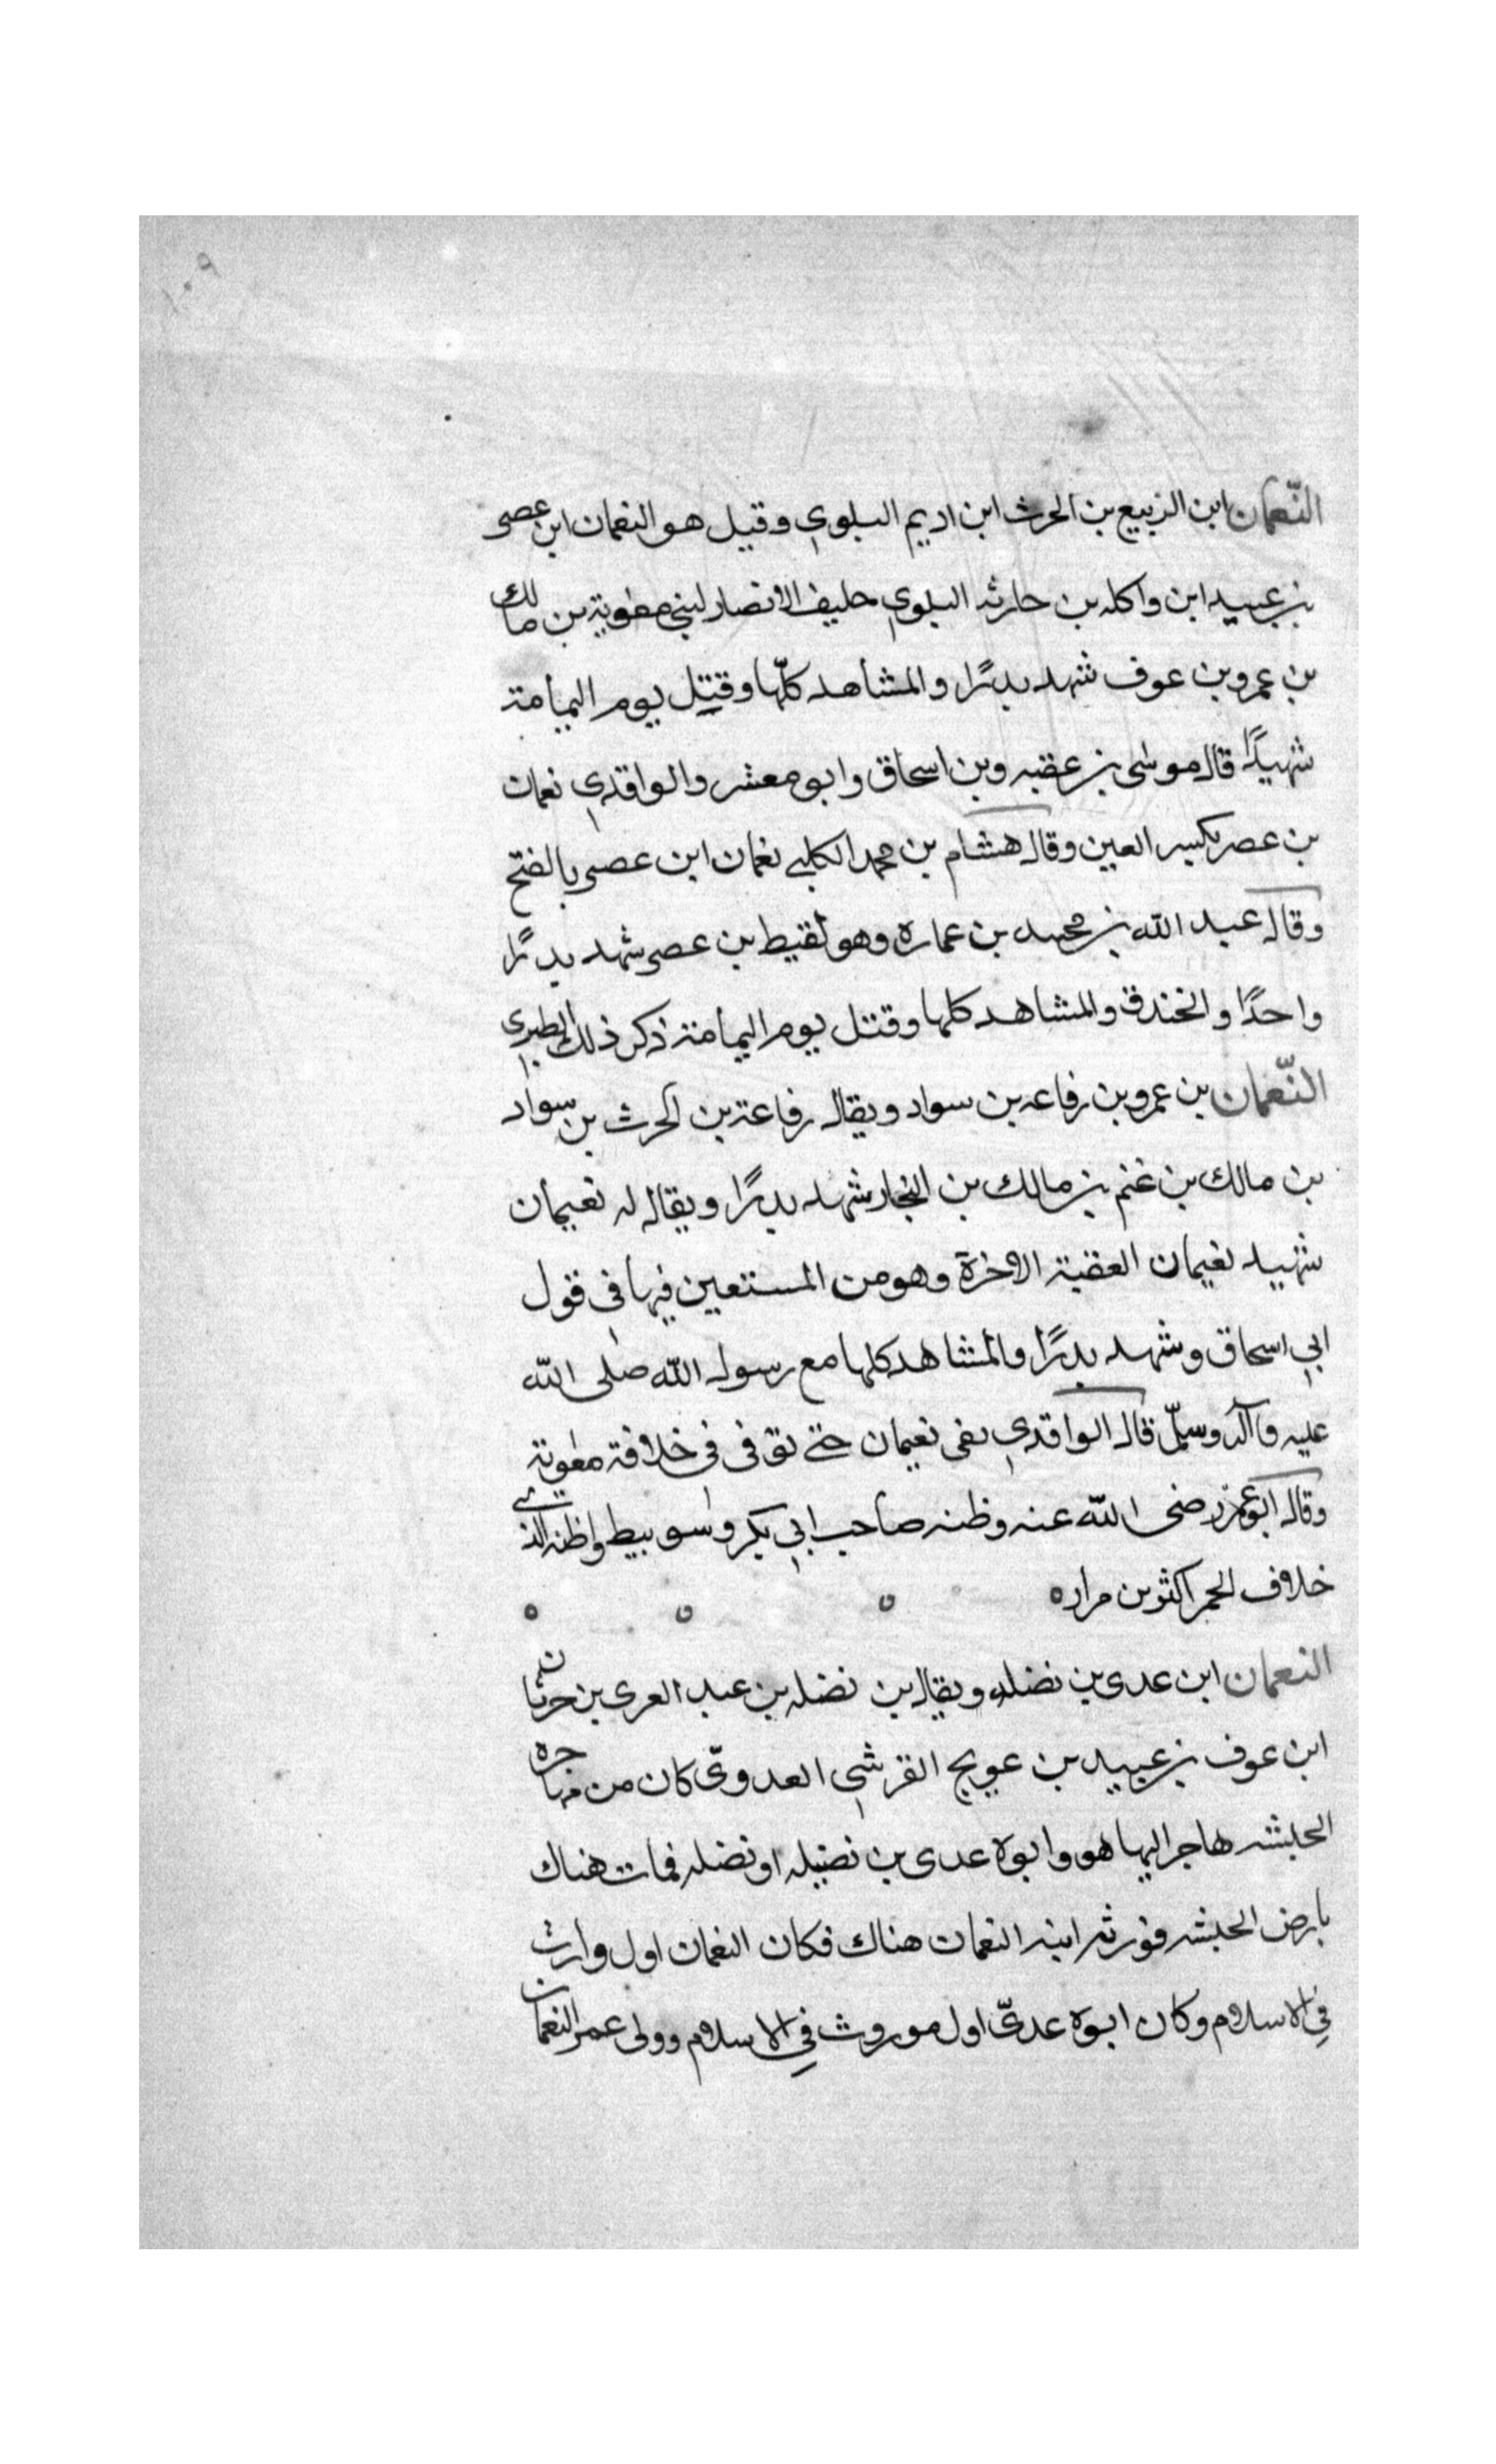 ١٠٩
النّعمان ابن الربيع بن الحرث ابن اديم البلوي وقيل هو النعمان ابن عصر
بن عبيد ابن واكله بن حارثه البلوي حليف الانصار لبني معوية بن مالك
بن عمرو بن عوف شهد بدرًا والمشاهد كلّها وقتِل يوم اليمامة
شهيدًا قال موسى بن عقبه وبن اسحاق وابو معشر والواقدي نعمان
بن عصر بكسر العين وقال هشام بن محمد الكلبي نعمان ابن عصر بالفتح
وقال عبد الله بن محمد بن عماره وهو لقيط بن عصر شهد بدرًا
واحدًا والخندق والمشاهد كلها وقتل يوم اليمامة ذكر ذلك الطبري
النّعمان بن عمرو بن رفاعه بن سواد ويقال رفاعة بن الحرث بن سواد
بن مالك بن غنم بن مالك بن النجار شهد بدرًا ويقال له نعيمان
شهيد نعيمان العقبة الاخرة وهو من المستعين فيها في قول
ابي اسحاق وشهد بدرًا والمشاهد كلها مع رسول الله صلى الله
عليه وآله وسلّم قال الواقدي بقى نعيمان حتى توفى في خلافة معوية
وقال ابو عمر رضى الله عنه وظنه صاحب ابي بكر وسويبط واظنه الذى
خلاف الخمر اكثر من مراره
النعمان ابن عدى بن نضله ويقال بن نضله بن عبد العزى بن حرثان
ابن عوف بن عبيد بن عويج القرشي العدوىّ كان من مهاجره
الحبشه هاجر اليها هو وابوه عدى بن نضيله او نضله فمات هناك
بارض الحبشه فورثه ابنه النعمان هناك فكان النعمان اول وارث
في الاسلام وكان ابوه عدىّ اول موروث في الاسلام وولى عمر النعمان